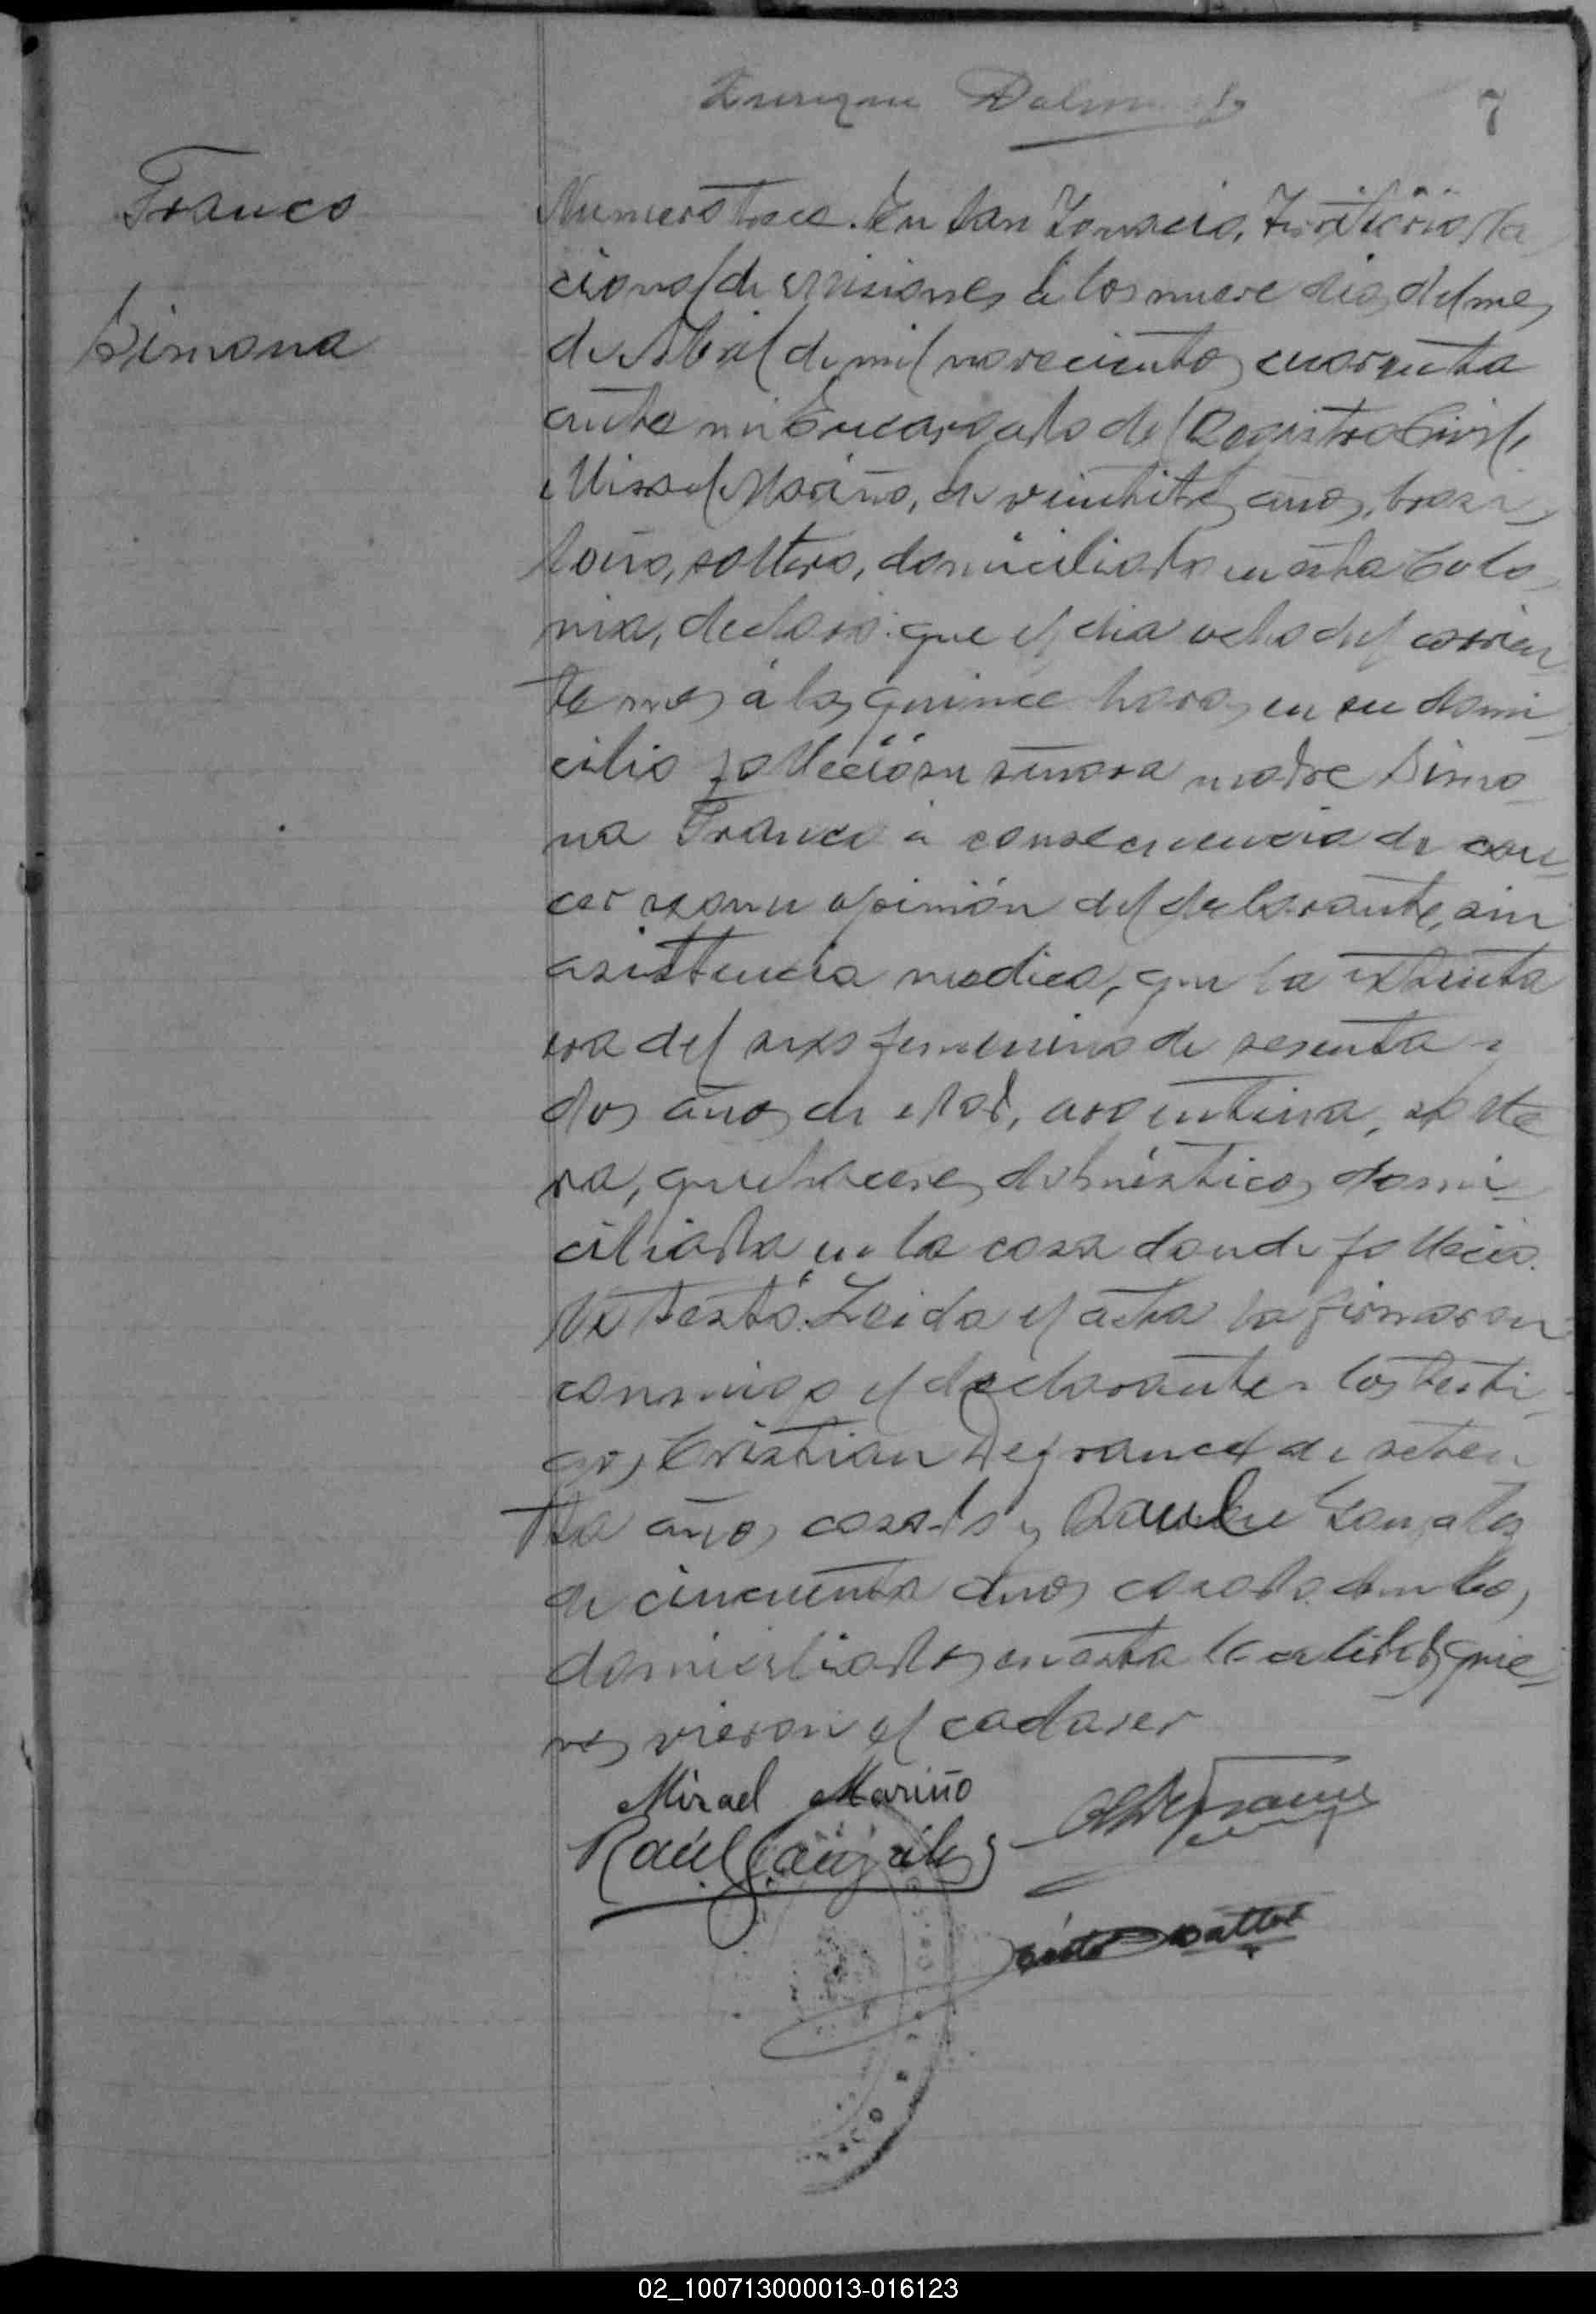 Enrique
7
Franco
Simona
Numero trece. En San Ignacio, Territorio Na
cional de Misiones a los nueve dias del mes
de Abril de mil novecientos cuarenta
ante mi Encargado del Registro Civil,
Misael Mariño, de veintitres años, brasi
leño, soltero, domiciliado en esta Colo
nia, declaró: que el dia ocho del corrien
te mes á las quince horas en su domi
cilio falleció su señora madre Simo
na Franco á consecuencia de can
cer segun opinión del declarante, sin
asistencia medica, que la extinta
era del sexo femenino de sesenta y
dos años de edad, argentina, solte
ra, quehaceres domésticos, domi
ciliada en la casa donde falleció.
No testó. Leida el acta la firmaron
conmigo el declarante y los testi
gos, Cristian Defrance de seten
ta años casado y Raul Gonzalez
de cincuenta años casado ambos
domiciliados en esta localidad, quie
nes vieron el cadaver
Misael Mariño
Raúl González